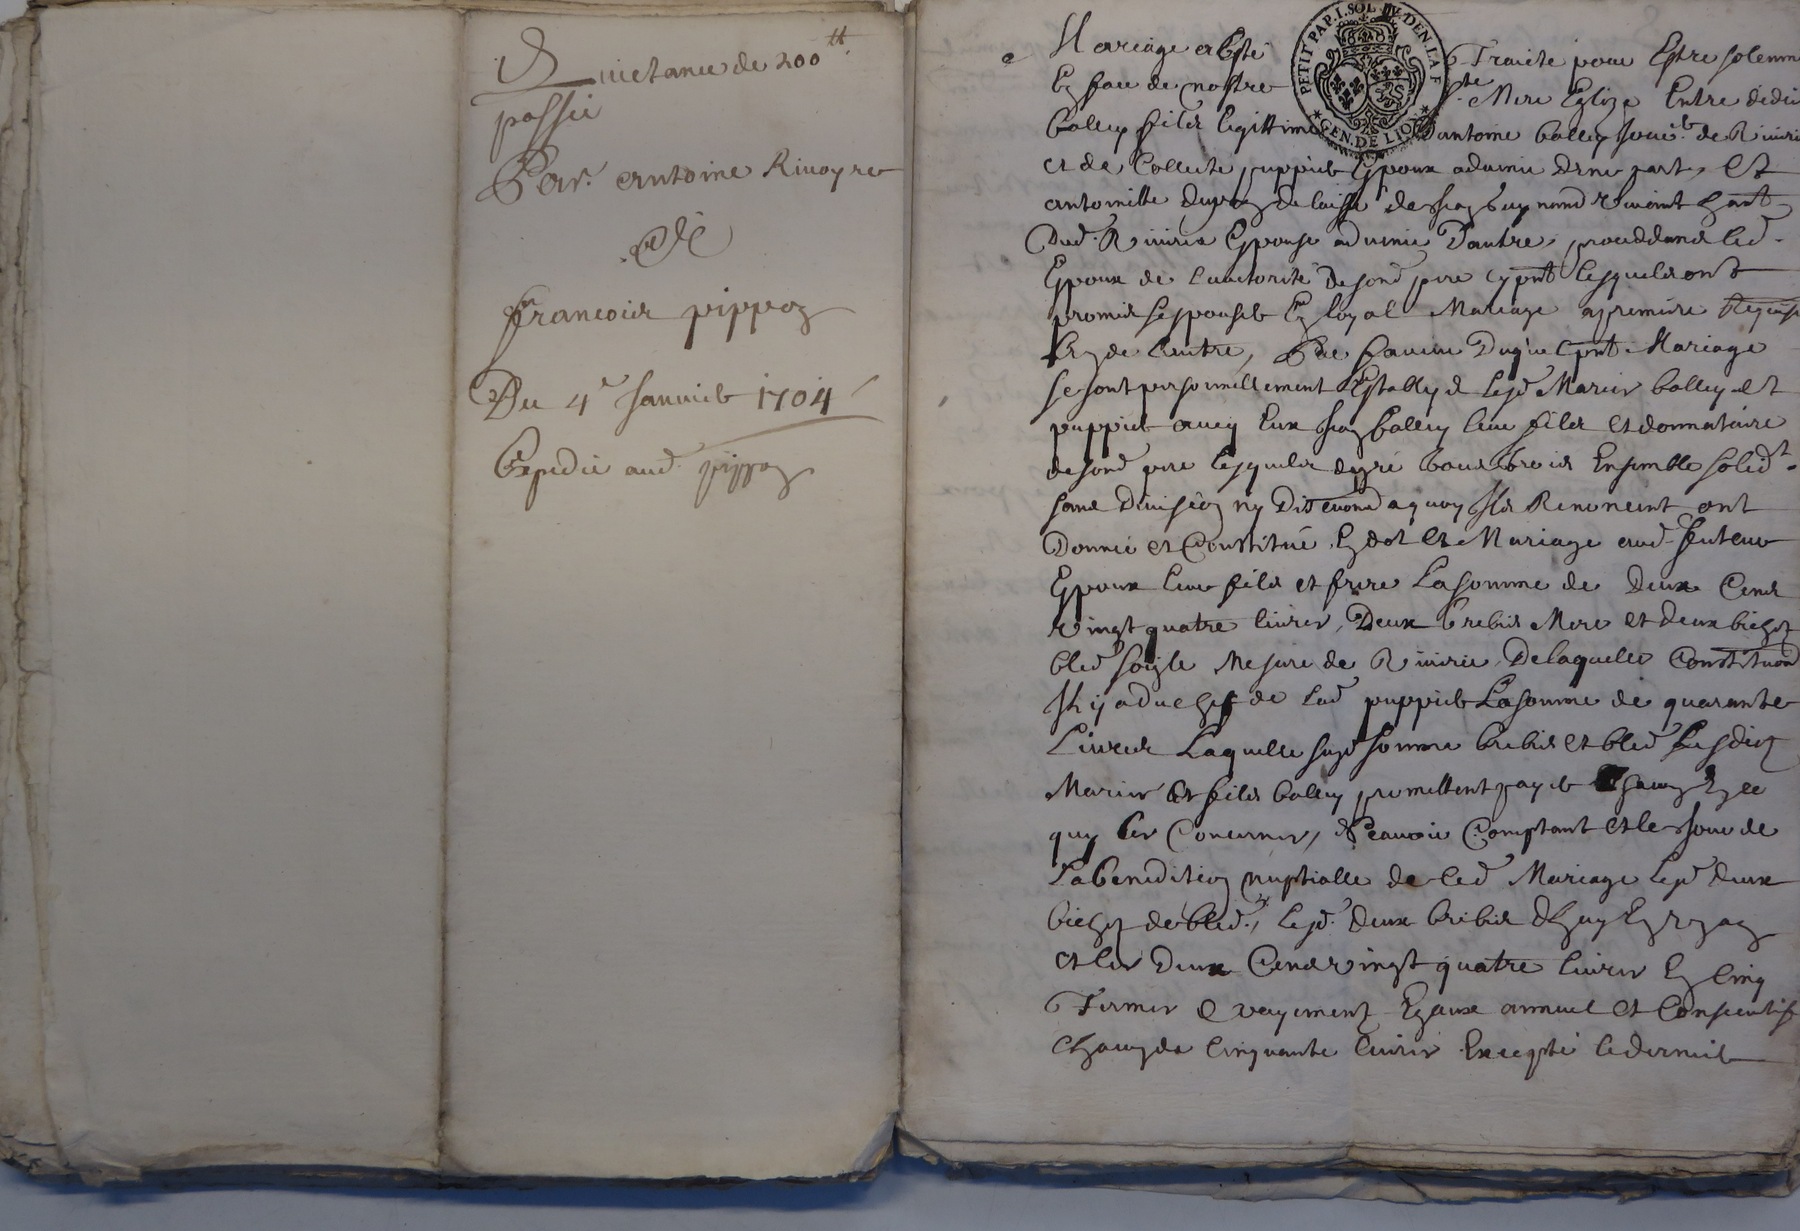 Quictance de 200 tt.
passée
Par. Antoine Rivoyre
A
francois pippoz
Du 4e Janvier 1704
Expedié aud. pippoz
PETIT PAP. I. SOL DV. DEN. LA F
GEN. DE LION
Mariage a Esté Traicté pour Estre solemn
En face de nostre Ste Mere Eglize Entre
balley fils legittime Dantoine balley de Riviri
et de Collette puppier Epoux advenir Dune part, Et
antoinette delaissé de
Dud. Rivirie Espouse advenir Dautre, proceddans led.
Epoux de Lauctorité de sond pere cy pnt lesquels ont
promis sespouser En loyal Mariage a premiere Requise
Lun de Lautre, En faveur Duquel pnt Mariage
se sont personnellement Establys lesd Mariés balley et
puppier avecq Eux balley leur fils et donnataire
de sond pere lesquels de gré Ensemble solidt.
sans Division ny Discution a quoy Ils Renoncent ont
Donné et Constitué En dot et Mariage aud futeur
Epoux leur fils et frere La somme de Deux Cens
vingt quatre livres, Deux brebis Mere et deux bichets
bled soigle Mesure de Rivirie De laquelle Constitution
Il y a du chef de Lad puppier La somme de quarante
Livres Laquelle susd somme brebis et bled Lesdits
Mariés et fils balley promettent payer chacun En ce
quy les Concerne, Scavoir Comptant et le Jour de
La benediction nuptialle de led Mariage lesd deux
bichets de bled., lesd. deux brebis dhuy En
et les Deux Cens vingt quatre livres En Cinq
Termes Egaux annuel et Consecutifs
chacun de Cinquante livres Excepté le dernier